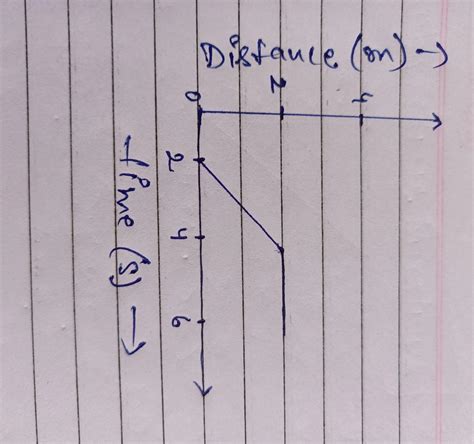 Distance (m) →
0 2 4
2
4
6
Time (s) →